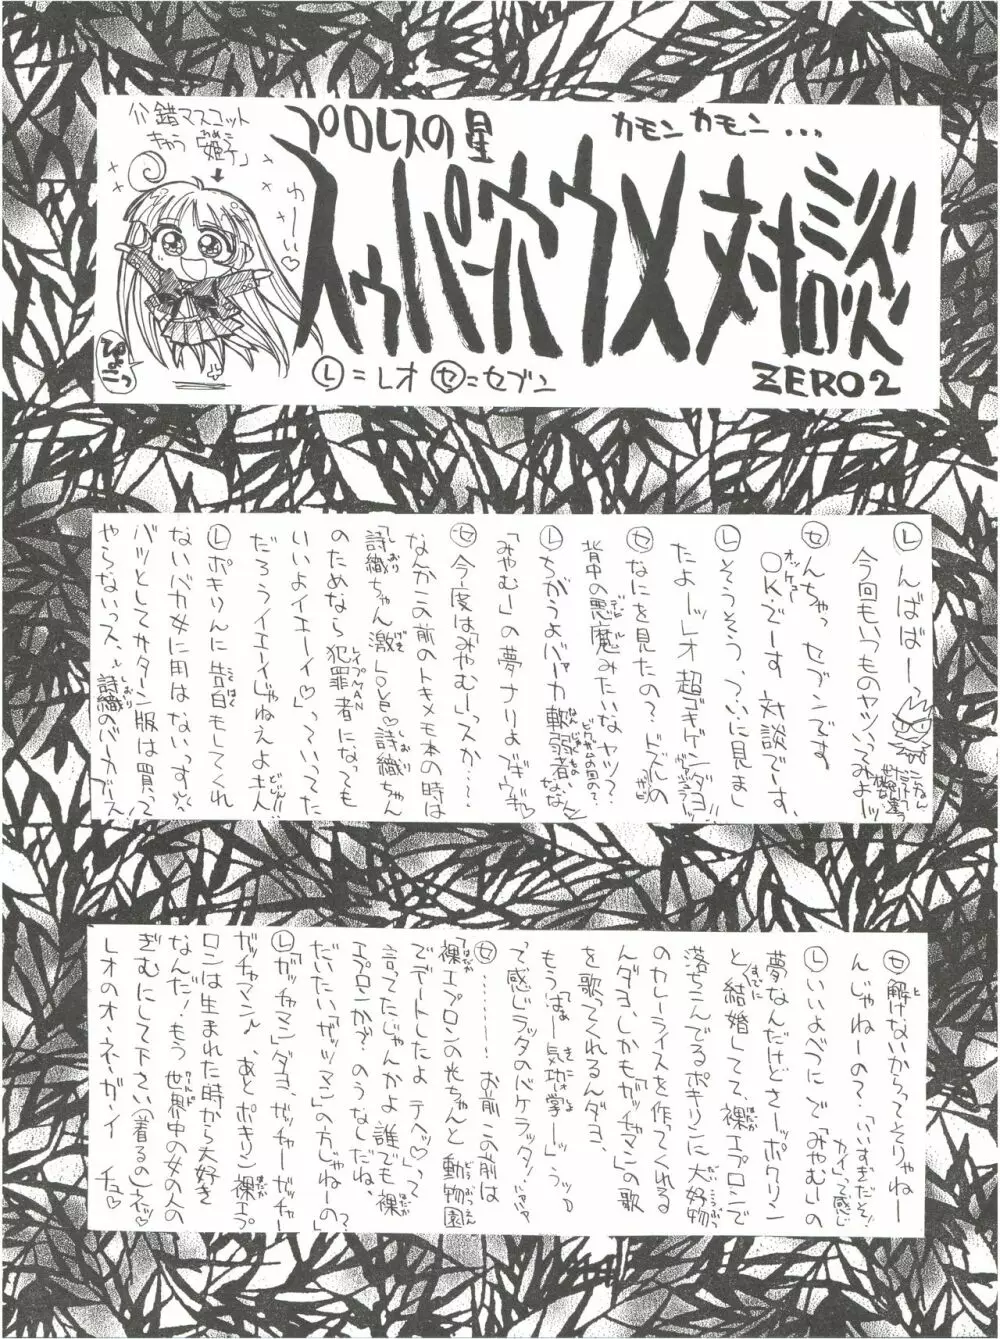 プロレスの星
カモンカモン...
スゥパーウメ対談
ZERO2
Ⓛ=レオ ㋝=セブン
介錯マスコット
きゃら「姫子」
わーい♡
ぴょこっ
Ⓛんばばーっ
今回もいつものヤツいってみよーッ
㋝んちゃっ セブンです
OKでーす 対談でーす、
Ⓛそうそう、ついに見まし
たよーッレオ超ゴキゲンダヨ!!
㋝なにを見たの? ドズルの
背中の悪魔みたいなヤツ?
Ⓛちがうよバァーカ軟弱者、
「みやむー」の夢ナリよブギウギ♡
㋝今度は「みやむー」スか……
なんかこの前のトキメモ本の時は
「詩織ちゃん激LOVE♡詩織ちゃん
のためなら犯罪者になっても
いいよイエーイ♡」っていってた
だろうイエーイじゃねえよキん
Ⓛポキりんに告白もしてくれ
ないバカ女に用はないっす
バッとしてサターン版は買って
やらないっス、詩織のバーカブース
㋝解けないからってそりゃねー
んじゃねーの?「いいすぎだぞ!
カイ」って感じ
Ⓛいいよべつにで「みやむー」の
夢なんだけどさーッポクリン
と結婚してて、裸エプロンで
落ちこんでるポキリンに大好物
のカレーライスを作ってくれる
んダヨ、しかも「ガッチャマン」の歌
を歌ってくれるんダヨ、
もう「はぁー気功掌ーッ」うッ
て感じラッタのバケラッタ!
㋝…………お前この前は
「裸エプロンの光ちゃんと動物園
でデートしたよテヘッ♡」って
言ってたじゃんかよ誰でも裸
エプロンか?のうなしだね、
だいたい「ガッツマン」の方じゃねーの」?
Ⓛ「ガッチャマン」ダヨ、ガッチャーガッチャー
ガッチャマン♪あとポキリン裸エプ
ロンは生まれた時から大好き
なんだ!もう世界中の女の人の
ぎむにして下さい(着るの)ネッ♡
レオのオ・ネ・ガ・イ チュ♡